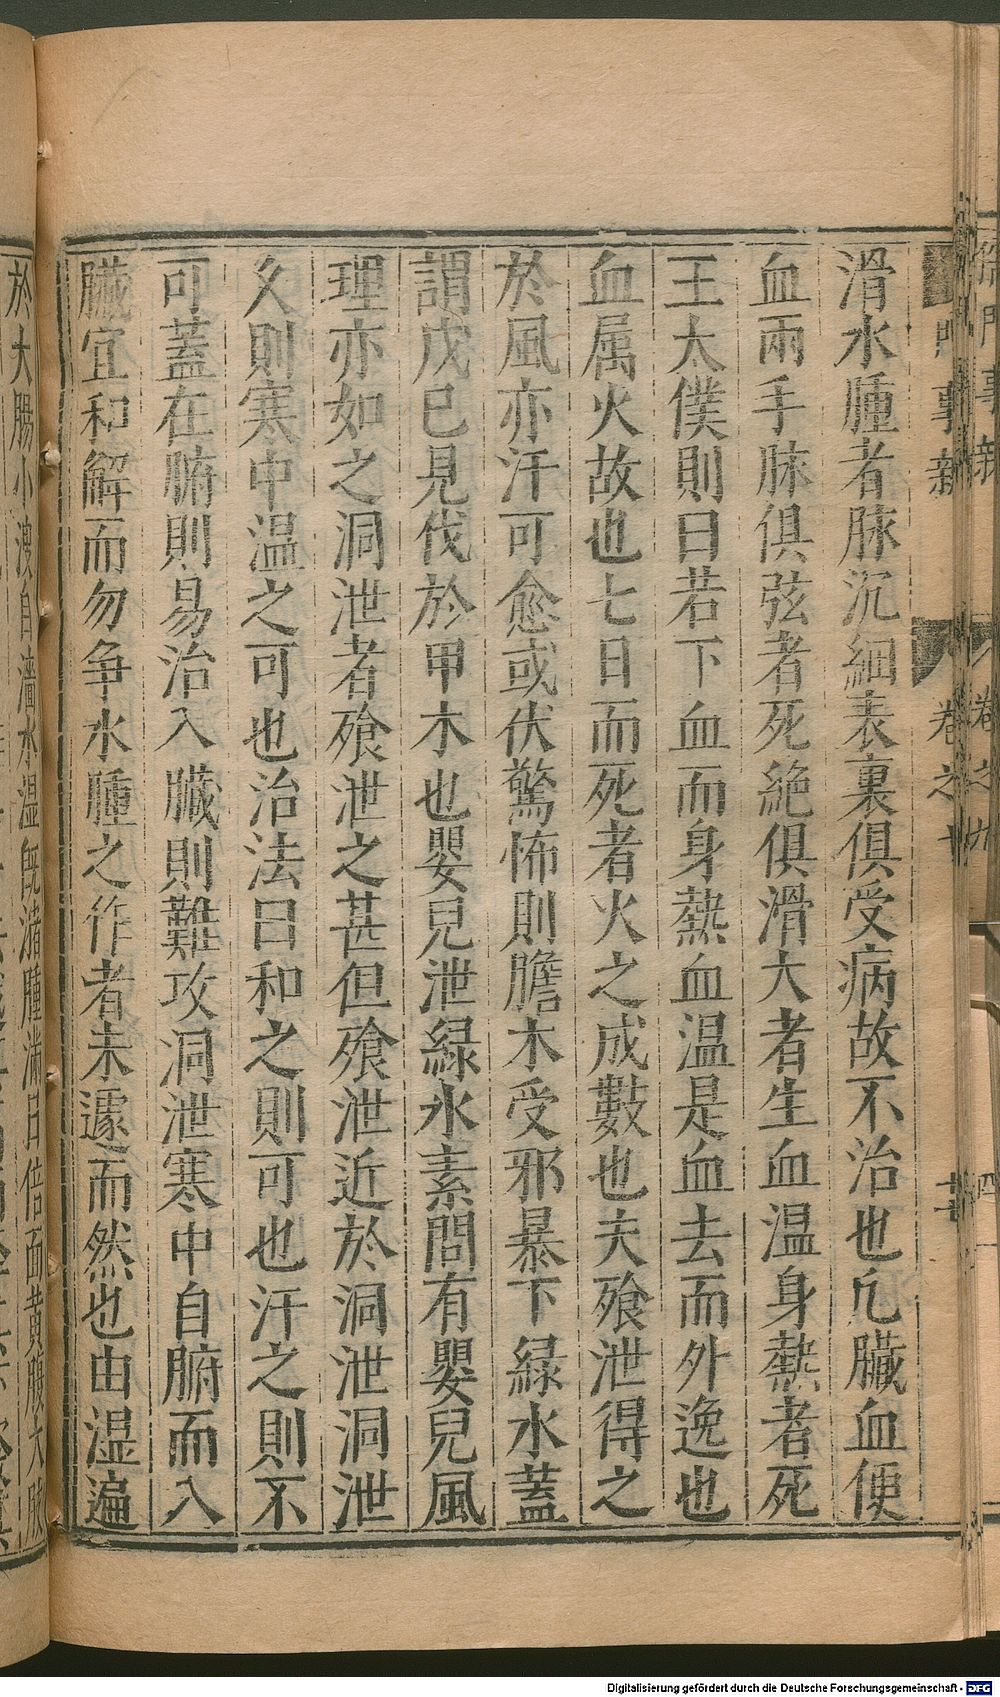 滑水腫者脉沉細表裏俱受病故不治也凢臓血便
血兩手脉俱弦者死絶俱滑大者生血温身熱者死
王太僕則曰若下血而身熱血温是血去而外逸也
血属火故也七日而死者火之成數也夫飱泄得之
於風亦汗可愈或伏驚怖則膽木受邪暴下緑水蓋
謂戊已見伐於甲木也嬰兒泄緑水素問有嬰兒風
理亦如之洞泄者飱泄之甚但飱泄近於洞泄洞泄
久則寒中温之可也治法曰和之則可也汗之則不
可蓋在腑則易治入臓則難攻洞泄寒中自腑而入
臓宜和解而勿争水腫之作者未遽而然也由湿遍
於大腸小溲自濇水湿既潴腫滿日倍面黄腹大
門事新
卷之十
卷之九
四
Digitalisierung gefördert durch die Deutsche Forschungsgemeinschaft - DFG